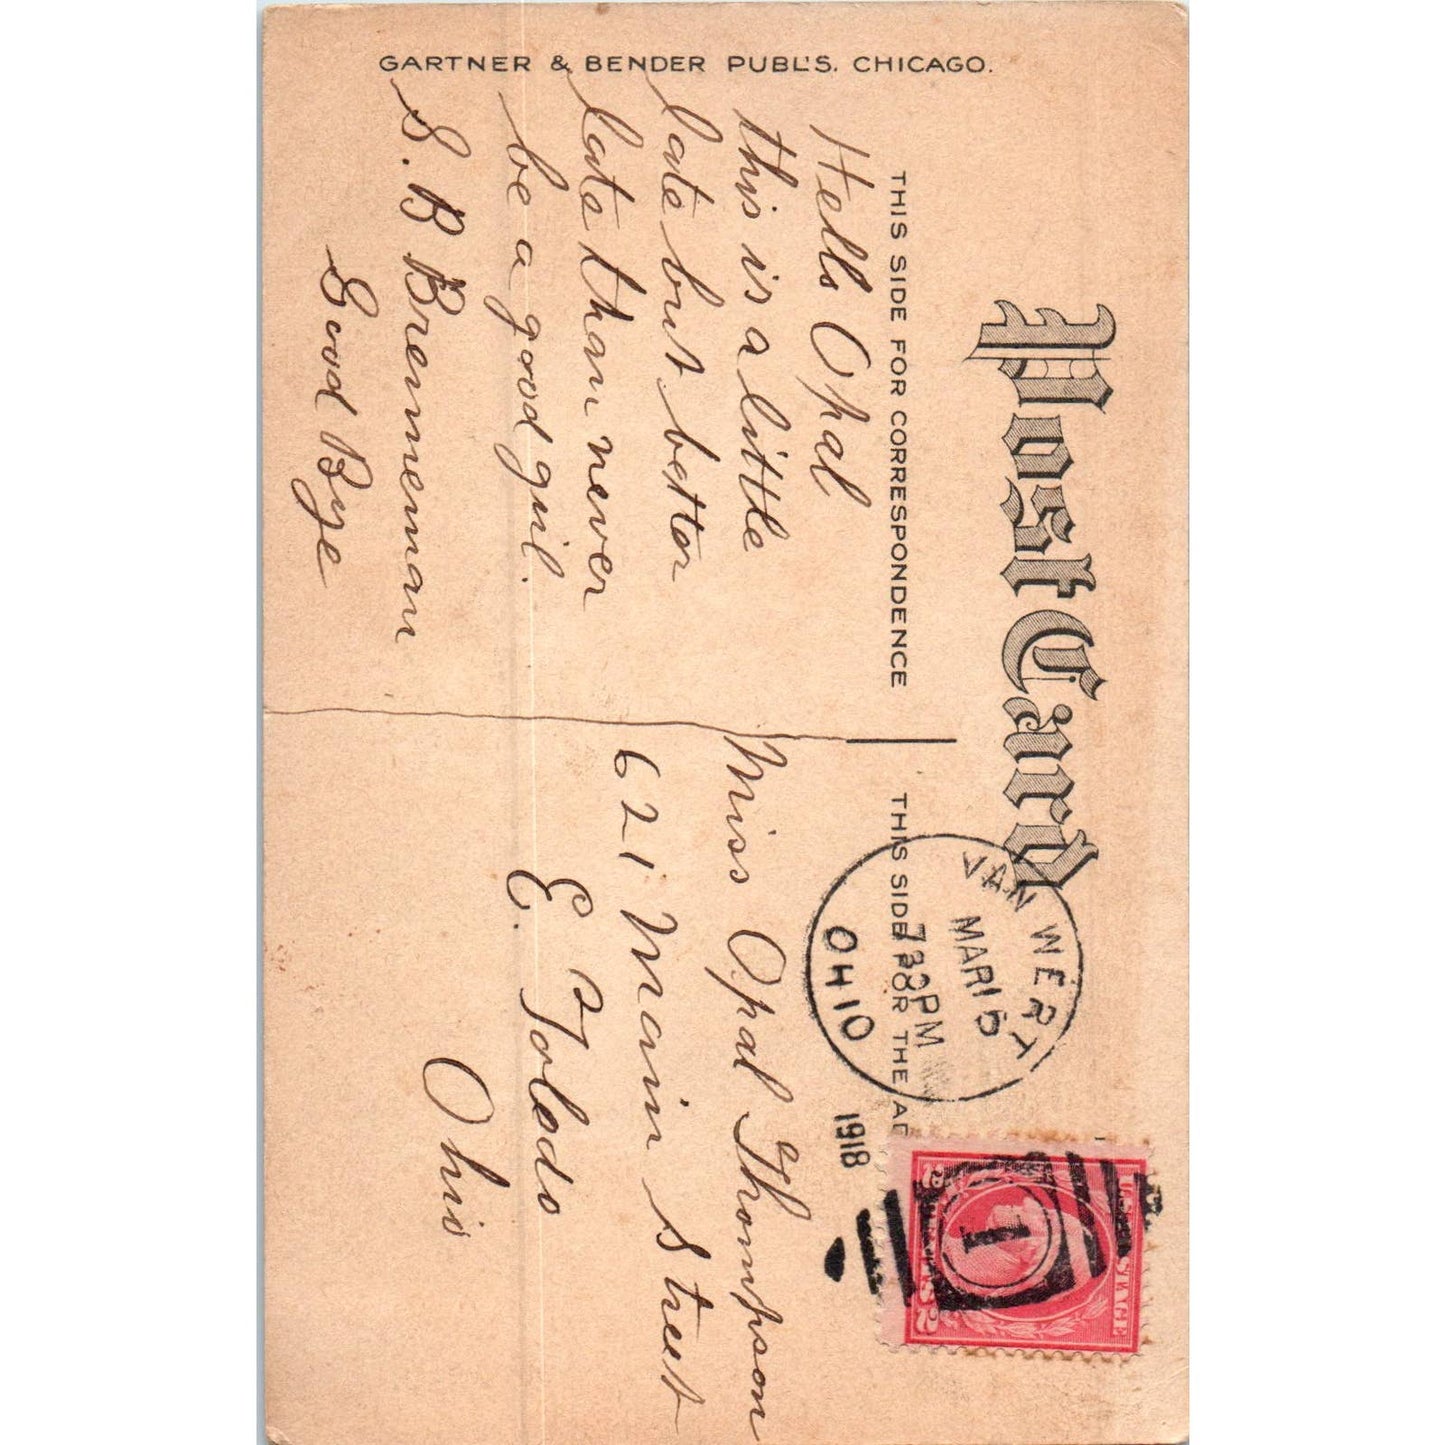 GARTNER & BENDER PUBL'S. CHICAGO.
Post Card
THIS SIDE FOR CORRESPONDENCE
Hello Opal
this is a little
late but better
late than never
be a good girl.
S. B Brenneman
Good Bye
THIS SIDE FOR THE AD
VAN WERT
MAR 15
730PM
OHIO
1918
1
U.S. POSTAGE
2 CENTS 2
Miss Opal Thompson
621 Main Street
E. Toledo
Ohio